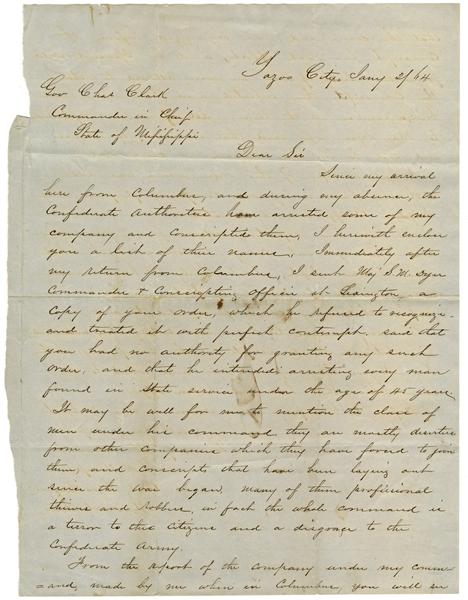 Yazoo City Jany 2/64
Gov Chas Clark
Commander in Chief
State of Mississippi
Dear Sir
Since my arrival
here from Columbus, and during my absence, the
Confederate Authorities have arrested some of my
company and Conscripted them, I herewith enclose
you a list of their names. Immediately after
my return from Columbus, I sent Maj S. M.
Commander & Conscripting Officer at Lexington, a
copy of your order, which he refused to recognize
and treated it with perfect contempt. said that
you had no authority for granting any such
order, and that he intended arresting every man
found in State service under the age of 45 years
It may be well for me to mention the class of
men under his command they are mostly deserters
from other companies which they have forced to join
them, and conscripts that have been laying out
since the war began, many of them professional
thieves and robbers, in fact the whole command is
a terror to the citizens and a disgrace to the
Confederate Army.
From the report of the company under my comm-
=and, made by me when in Columbus, you will see